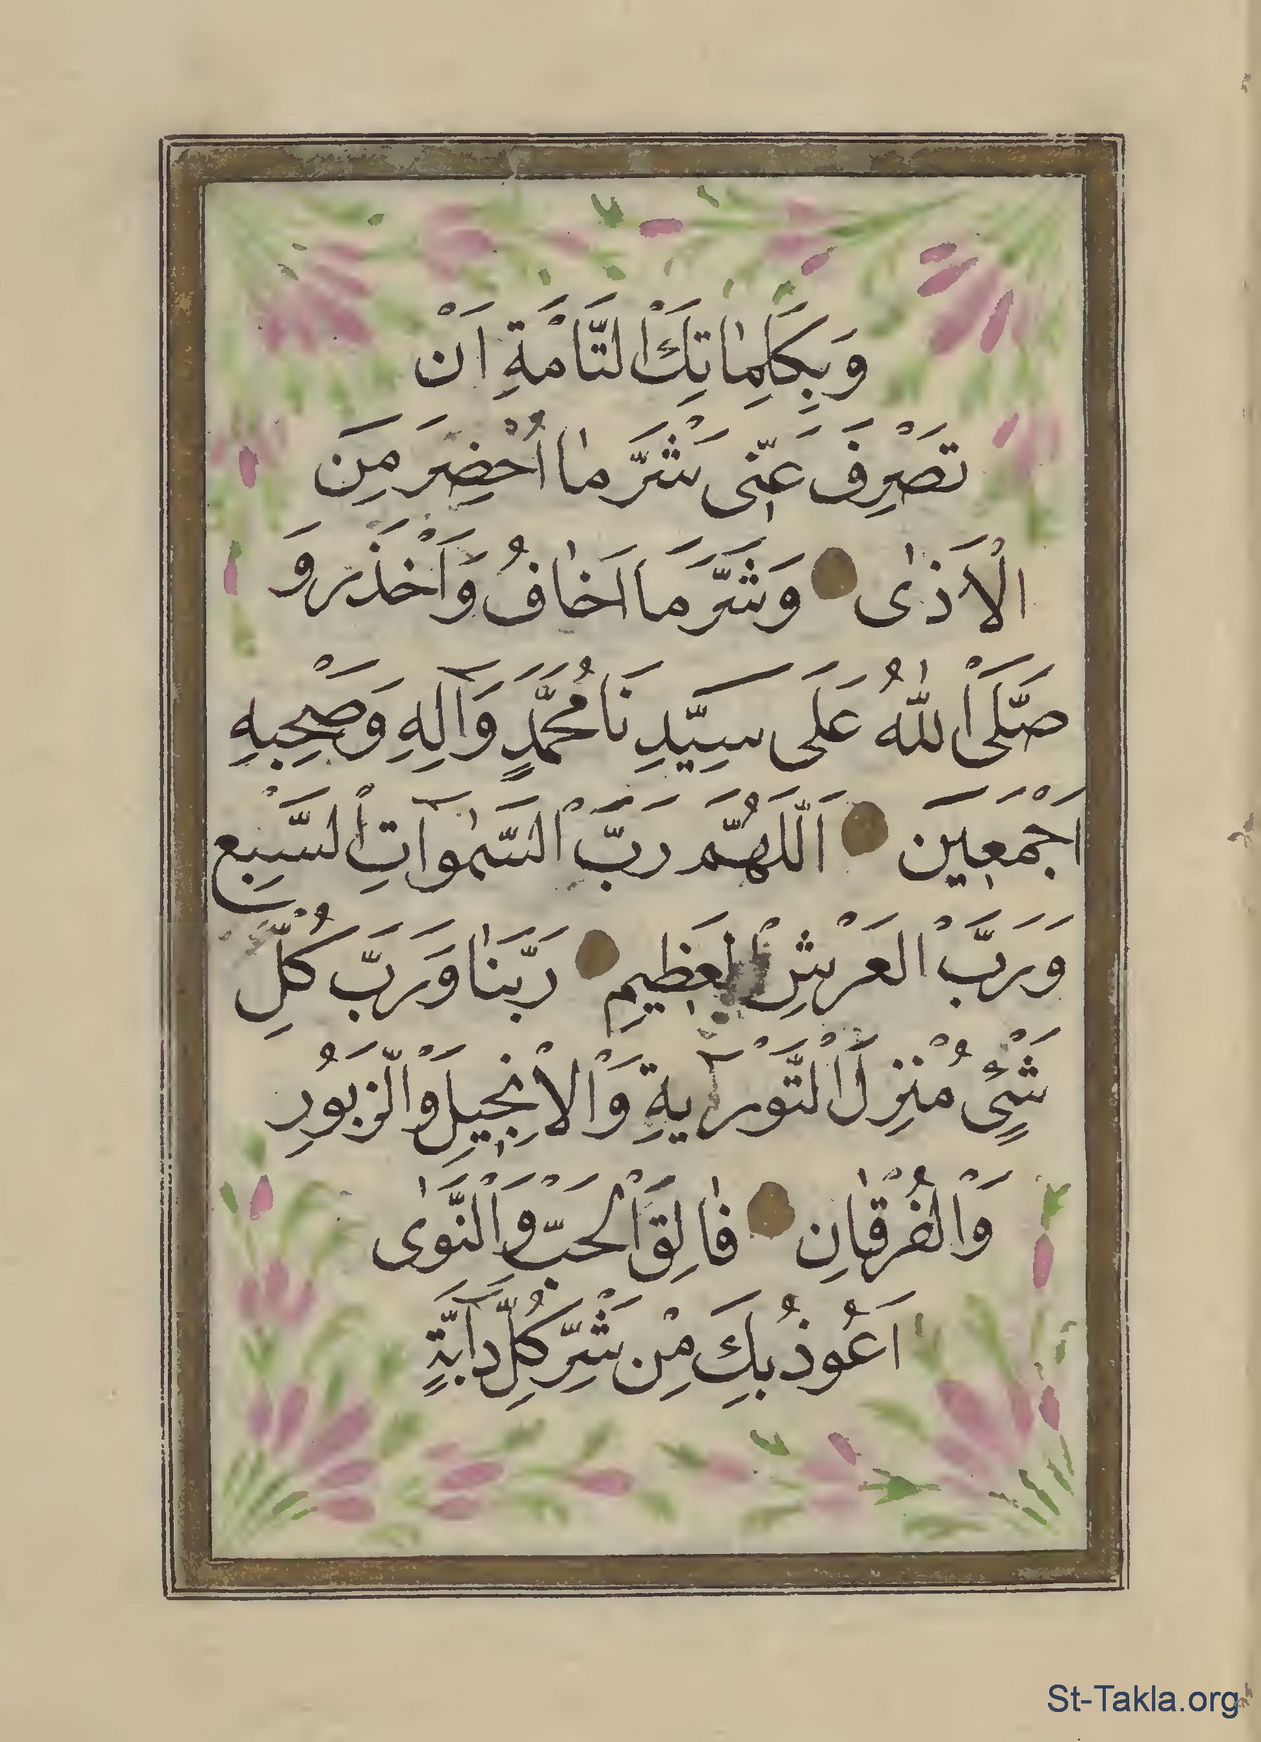 وَبِكَلِمَاتِكَ الْتَّامَةِ اَنْ
تَصْرِفَ عَنِّى شَرَّ مَا اُحْضِرَ مِنَ
الْاَذٰى وَشَرَّ مَا اَخَافُ وَاَخْذَرَ وَ
صَلَّى اللّٰهُ عَلَى سَيِّدِنَا مُحَمَّدٍ وَآلِهِ وَصَحِبِهِ
اَجْمَعِينَ اَللّٰهُمَّ رَبَّ السَّمٰوَآتِ السَّبِعِ
وَرَبَّ الْعَرْشِ الْعَظِيمِ رَبَّنَا وَرَبَّ كُلِّ
شَيْئٍ مُنْزِلَ الْتَّوْرٰيةِ وَالْاِنْجِيلِ وَالْزَّبُورِ
وَالْفُرْقَانِ فَالِقَ الْحَبِّ وَالْنَّوٰى
اَعُوذُ بِكَ مِنْ شَرِّ كُلِّ دَآبَّةٍ
St-Takla.org